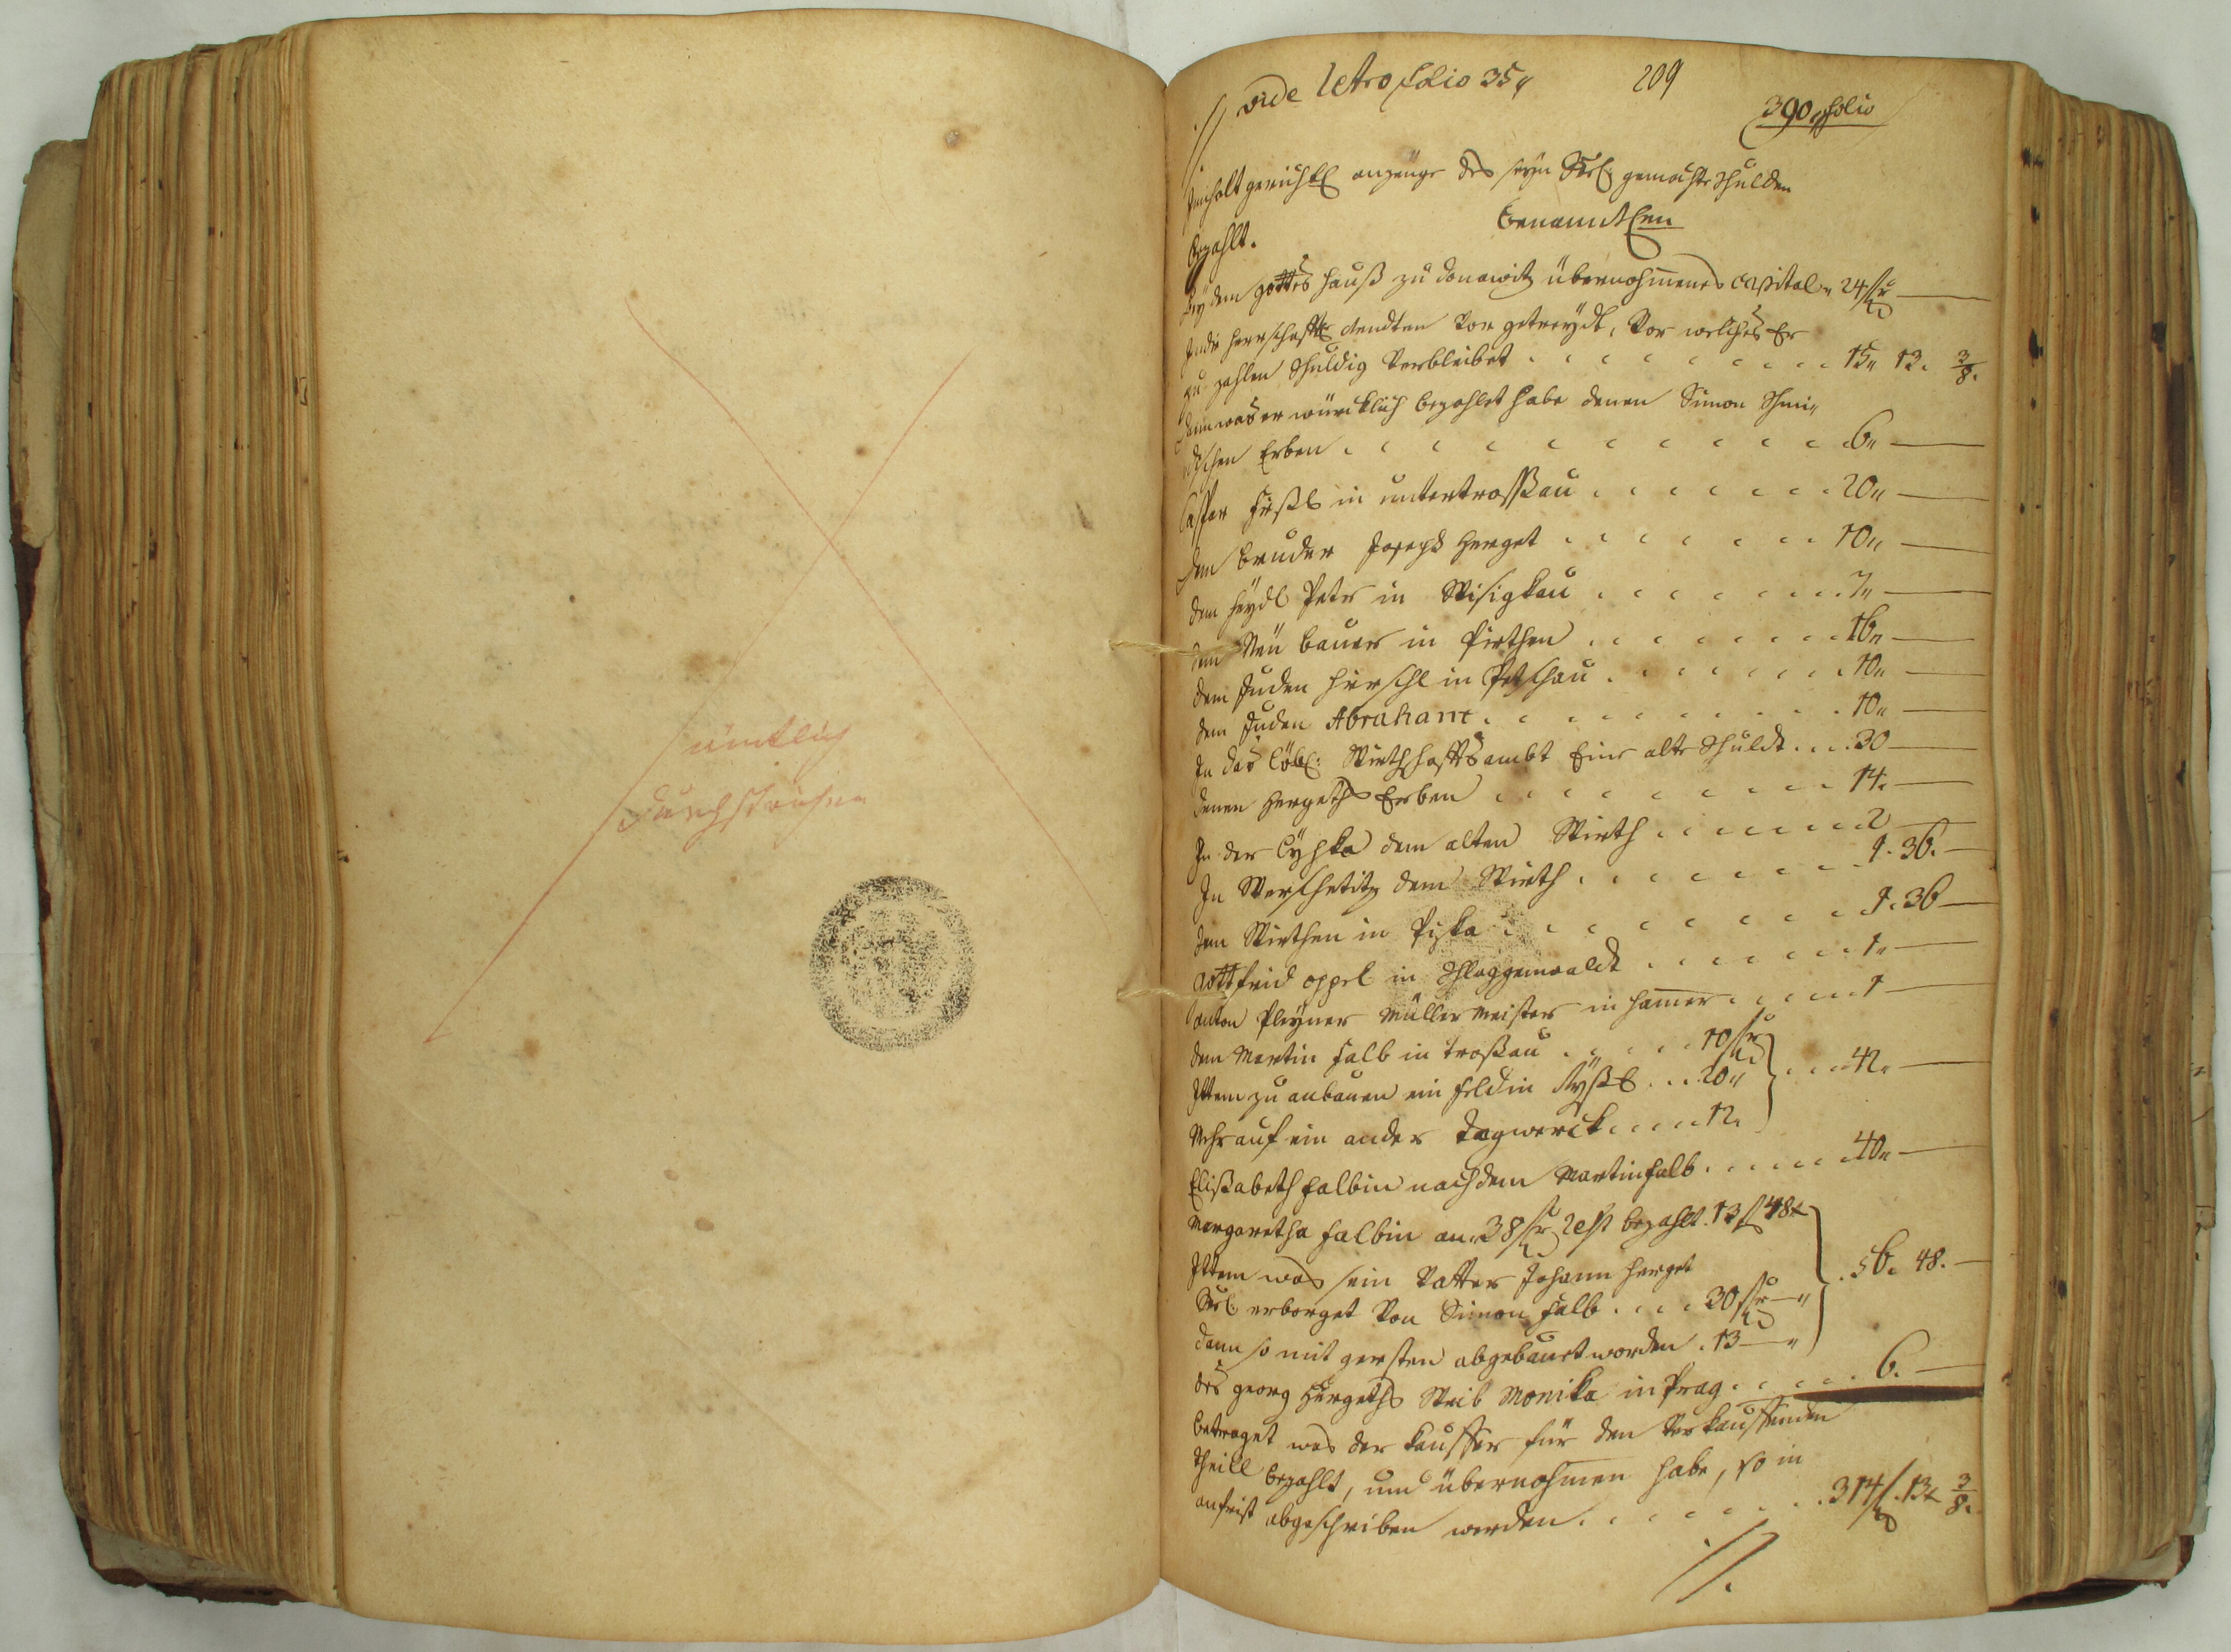 ämtlich
durchstrichen
vide retro folio 35
209
390 folio
Inhalt gerichtl anzeuge des seyn Seel: gemachte Schulden
bezahlt. Benanntlen
Bey dem gottes hauß zu donawitz übernohmenes Capital 24 fl
Indie herrschaftl Rendten Vor getreydt, Vor welches Er
zu zahlen Schuldig Verbleibet 15 13 3/8
dann was er würcklich bezahlet habe denen Simon
Erben 6
Caspar in untertrossau 20
dem bruder Joseph Herget 10
dem Heydl Peter in 7
dem Neu bauer in Pirthen 16
dem Juden Hirschl in Petschau 10
dem Juden Abraham 10
In das Löbl: Wirthschaffts ambt Eine alte Schuldt 30
denen Hergeths Erben 14
In der dem alten Wirth 2
In dem Wirth 1 36
dem Wirthen in 1 36
Gottfried oppel in Schlaggenwaldt 1
Anton Pleyner Müller Meister in hamer 1
dem Martin Falb in troßau 10 fl
Ittem zu anbauen ein feld in 20
Mehr auf ein ander tagwerck 12
42
Elisabeth Falbin nach dem Martin Falb 40
Margaretha Falbin an 38 fl rest bezahlt 13 fl 48 x
Ittem was sein Vatter Johann Herget
Seel: erborget Von Simon Falb 30 fl
56 48
dann so mit gersten abgebauet worden 13
des georg Hergeths Weib Monika in Prag 6
betraget was der kauffer für den Verkauffenden
theill bezahlt, und übernohmen habe, so in
anfrist abgeschriben worden 314 fl 13 x 3/8